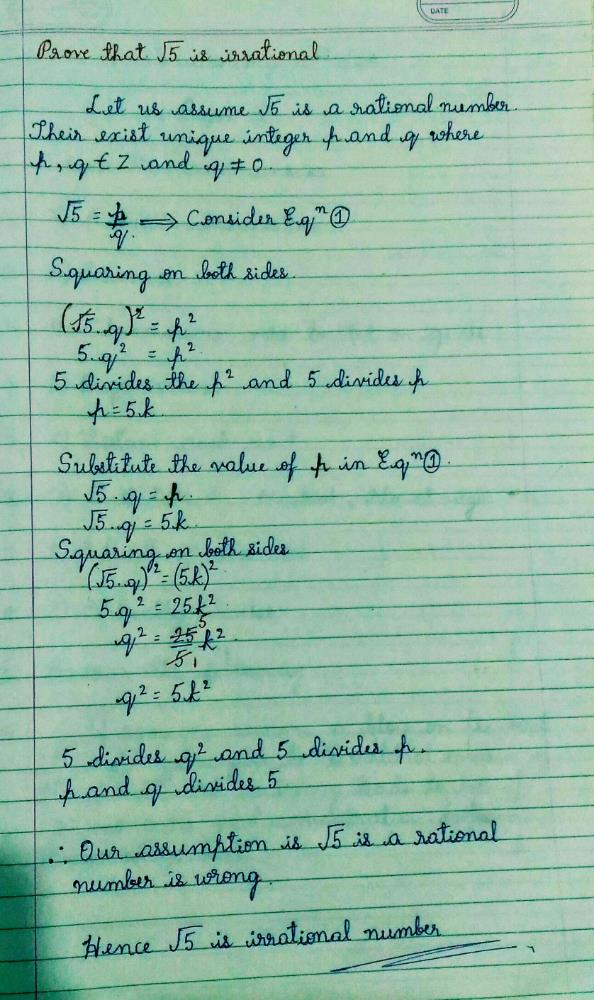 DATE
Prove that √5 is irrational
Let us assume √5 is a rational number.
Their exist unique integer p and q where
p, q ∈ Z and q ≠ 0.
√5 = p/q ⟹ Consider Eqⁿ ①
Squaring on both sides.
(√5.q)² = p²
5.q² = p²
5 divides the p² and 5 divides p
p = 5.k
Substitute the value of p in Eqⁿ①.
√5.q = p.
√5.q = 5.k
Squaring on both sides
(√5.q)² = (5.k)²
5.q² = 25k²
q² = 25/5 k² 5 1
q² = 5k²
5 divides q² and 5 divides p.
p and q divides 5
∴ Our assumption is √5 is a rational
number is wrong.
Hence √5 is irrational number